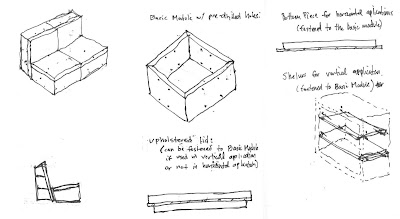 Basic Module w/ pre-drilled holes:
upholstered lid:
(can be fastened to Basic Module
if used in vertical application
or not in horizontal application)
Bottom Piece for horizontal applications
(fastened to the basic module)
Shelves for vertical application
(fastened to Basic Module)